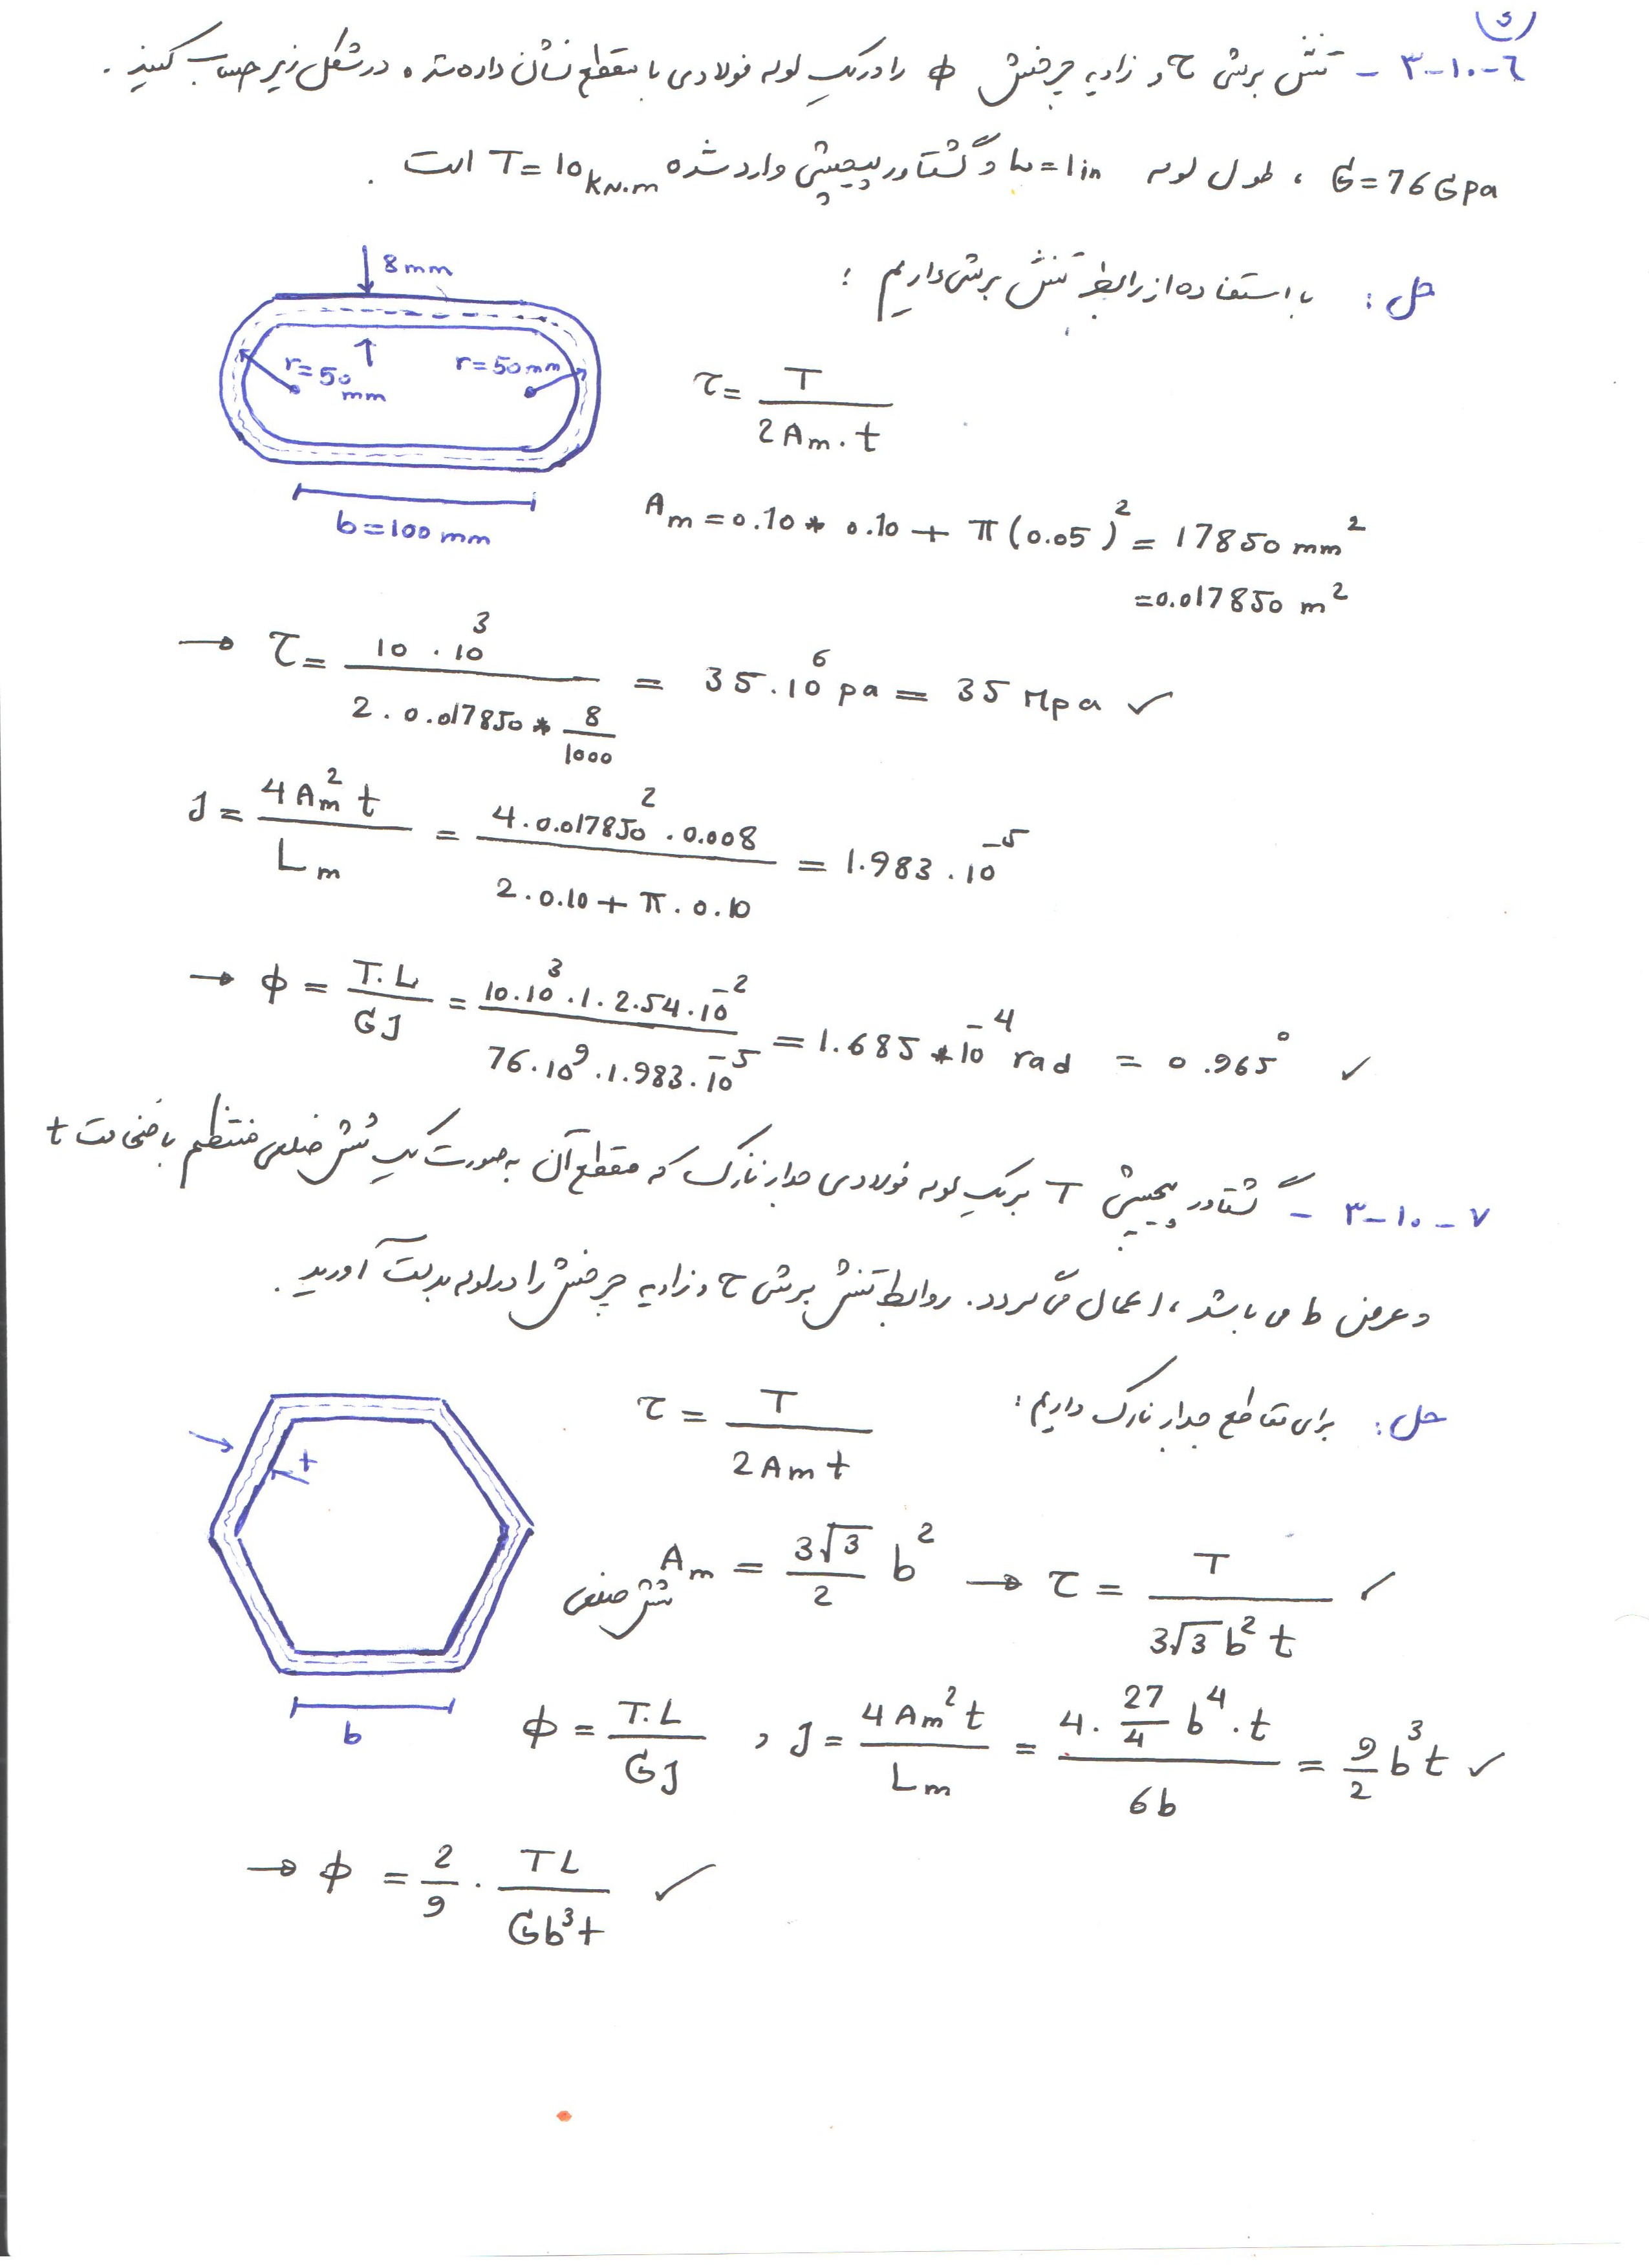 ۵
۳-۱۰-۶ - تنش برشی τ و زاویه چرخش ϕ را در یک لوله فولادی با مقطع نشان داده شده در شکل زیر حساب کنید.
G=76Gpa ، طول لوله L=1in و گشتاور پیچشی وارد شده T=10 kN.m است.
حل: با استفاده از رابطه تنش برشی داریم:
8mm
r=50 mm
r=50mm
b=100 mm
τ= T / 2Am.t
Am=0.10*0.10+π(0.05)²=17850 mm²
=0.017850 m²
→ τ= 10.10³ / 2.0.017850*8/1000 = 35.10⁶ pa = 35 Mpa ✓
J= 4Am²t / Lm = 4.0.017850².0.008 / 2.0.10+π.0.10 = 1.983.10⁻⁵
→ ϕ = T.L / GJ = 10.10³.1.2.54.10⁻² / 76.10⁹.1.983.10⁻⁵ = 1.685*10⁻⁴ rad = 0.965° ✓
۳-۱۰-۷ - گشتاور پیچشی T بر یک لوله فولادی جدار نازک که مقطع آن به صورت یک شش ضلعی منتظم با ضخامت t
و عرض b می باشد، اعمال می گردد. روابط تنش برشی τ و زاویه چرخش را در لوله بدست آورید.
حل: برای مقاطع جدار نازک داریم:
t
b
τ = T / 2Amt
Am شش ضلعی = 3√3/2 b² → τ = T / 3√3b²t ✓
ϕ = T.L / GJ , J = 4Am²t / Lm = 4.27/4 b⁴.t / 6b = 9/2 b³t ✓
→ ϕ = 2/9 . TL / Gb³t ✓